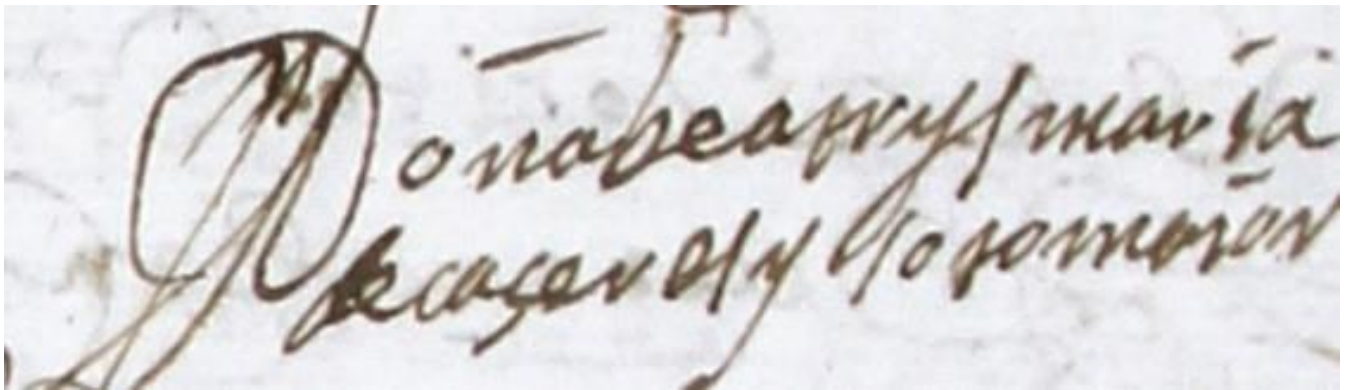 Doña beatrys maria
de caçeres y sotomaior